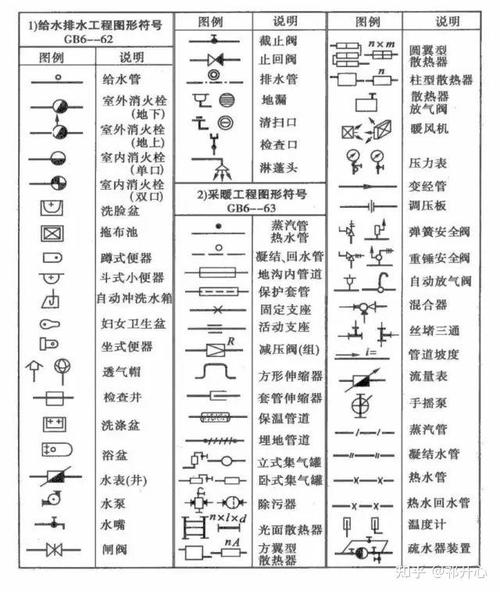 1)给水排水工程图形符号
GB6—62
图例
说明
给水管
室外消火栓
(地下)
室外消火栓
(地上)
室内消火栓
(单口)
室内消火栓
(双口)
洗脸盆
拖布池
蹲式便器
斗式小便器
自动冲洗水箱
妇女卫生盆
坐式便器
透气帽
检查井
洗涤盆
浴盆
水表(井)
水泵
水嘴
闸阀
图例
说明
截止阀
止回阀
排水管
地漏
清扫口
检查口
淋蓬头
2)采暖工程图形符号
GB6—63
蒸汽管
热水管
凝结、回水管
地沟内管道
保护套管
固定支座
活动支座
R
减压阀(组)
方形伸缩器
套管伸缩器
保温管道
埋地管道
立式集气罐
卧式集气罐
除污器
n×l×d
光面散热器
nA
方翼型
散热器
图例
说明
n×m
圆翼型
散热器
n
柱型散热器
散热器
放气阀
暖风机
压力表
变经管
调压板
弹簧安全阀
重锤安全阀
自动放气阀
混合器
丝堵三通
i=
管道坡度
流量表
手摇泵
蒸汽管
凝结水管
热水管
热水回水管
温度计
疏水器装置
知乎 @祁开心